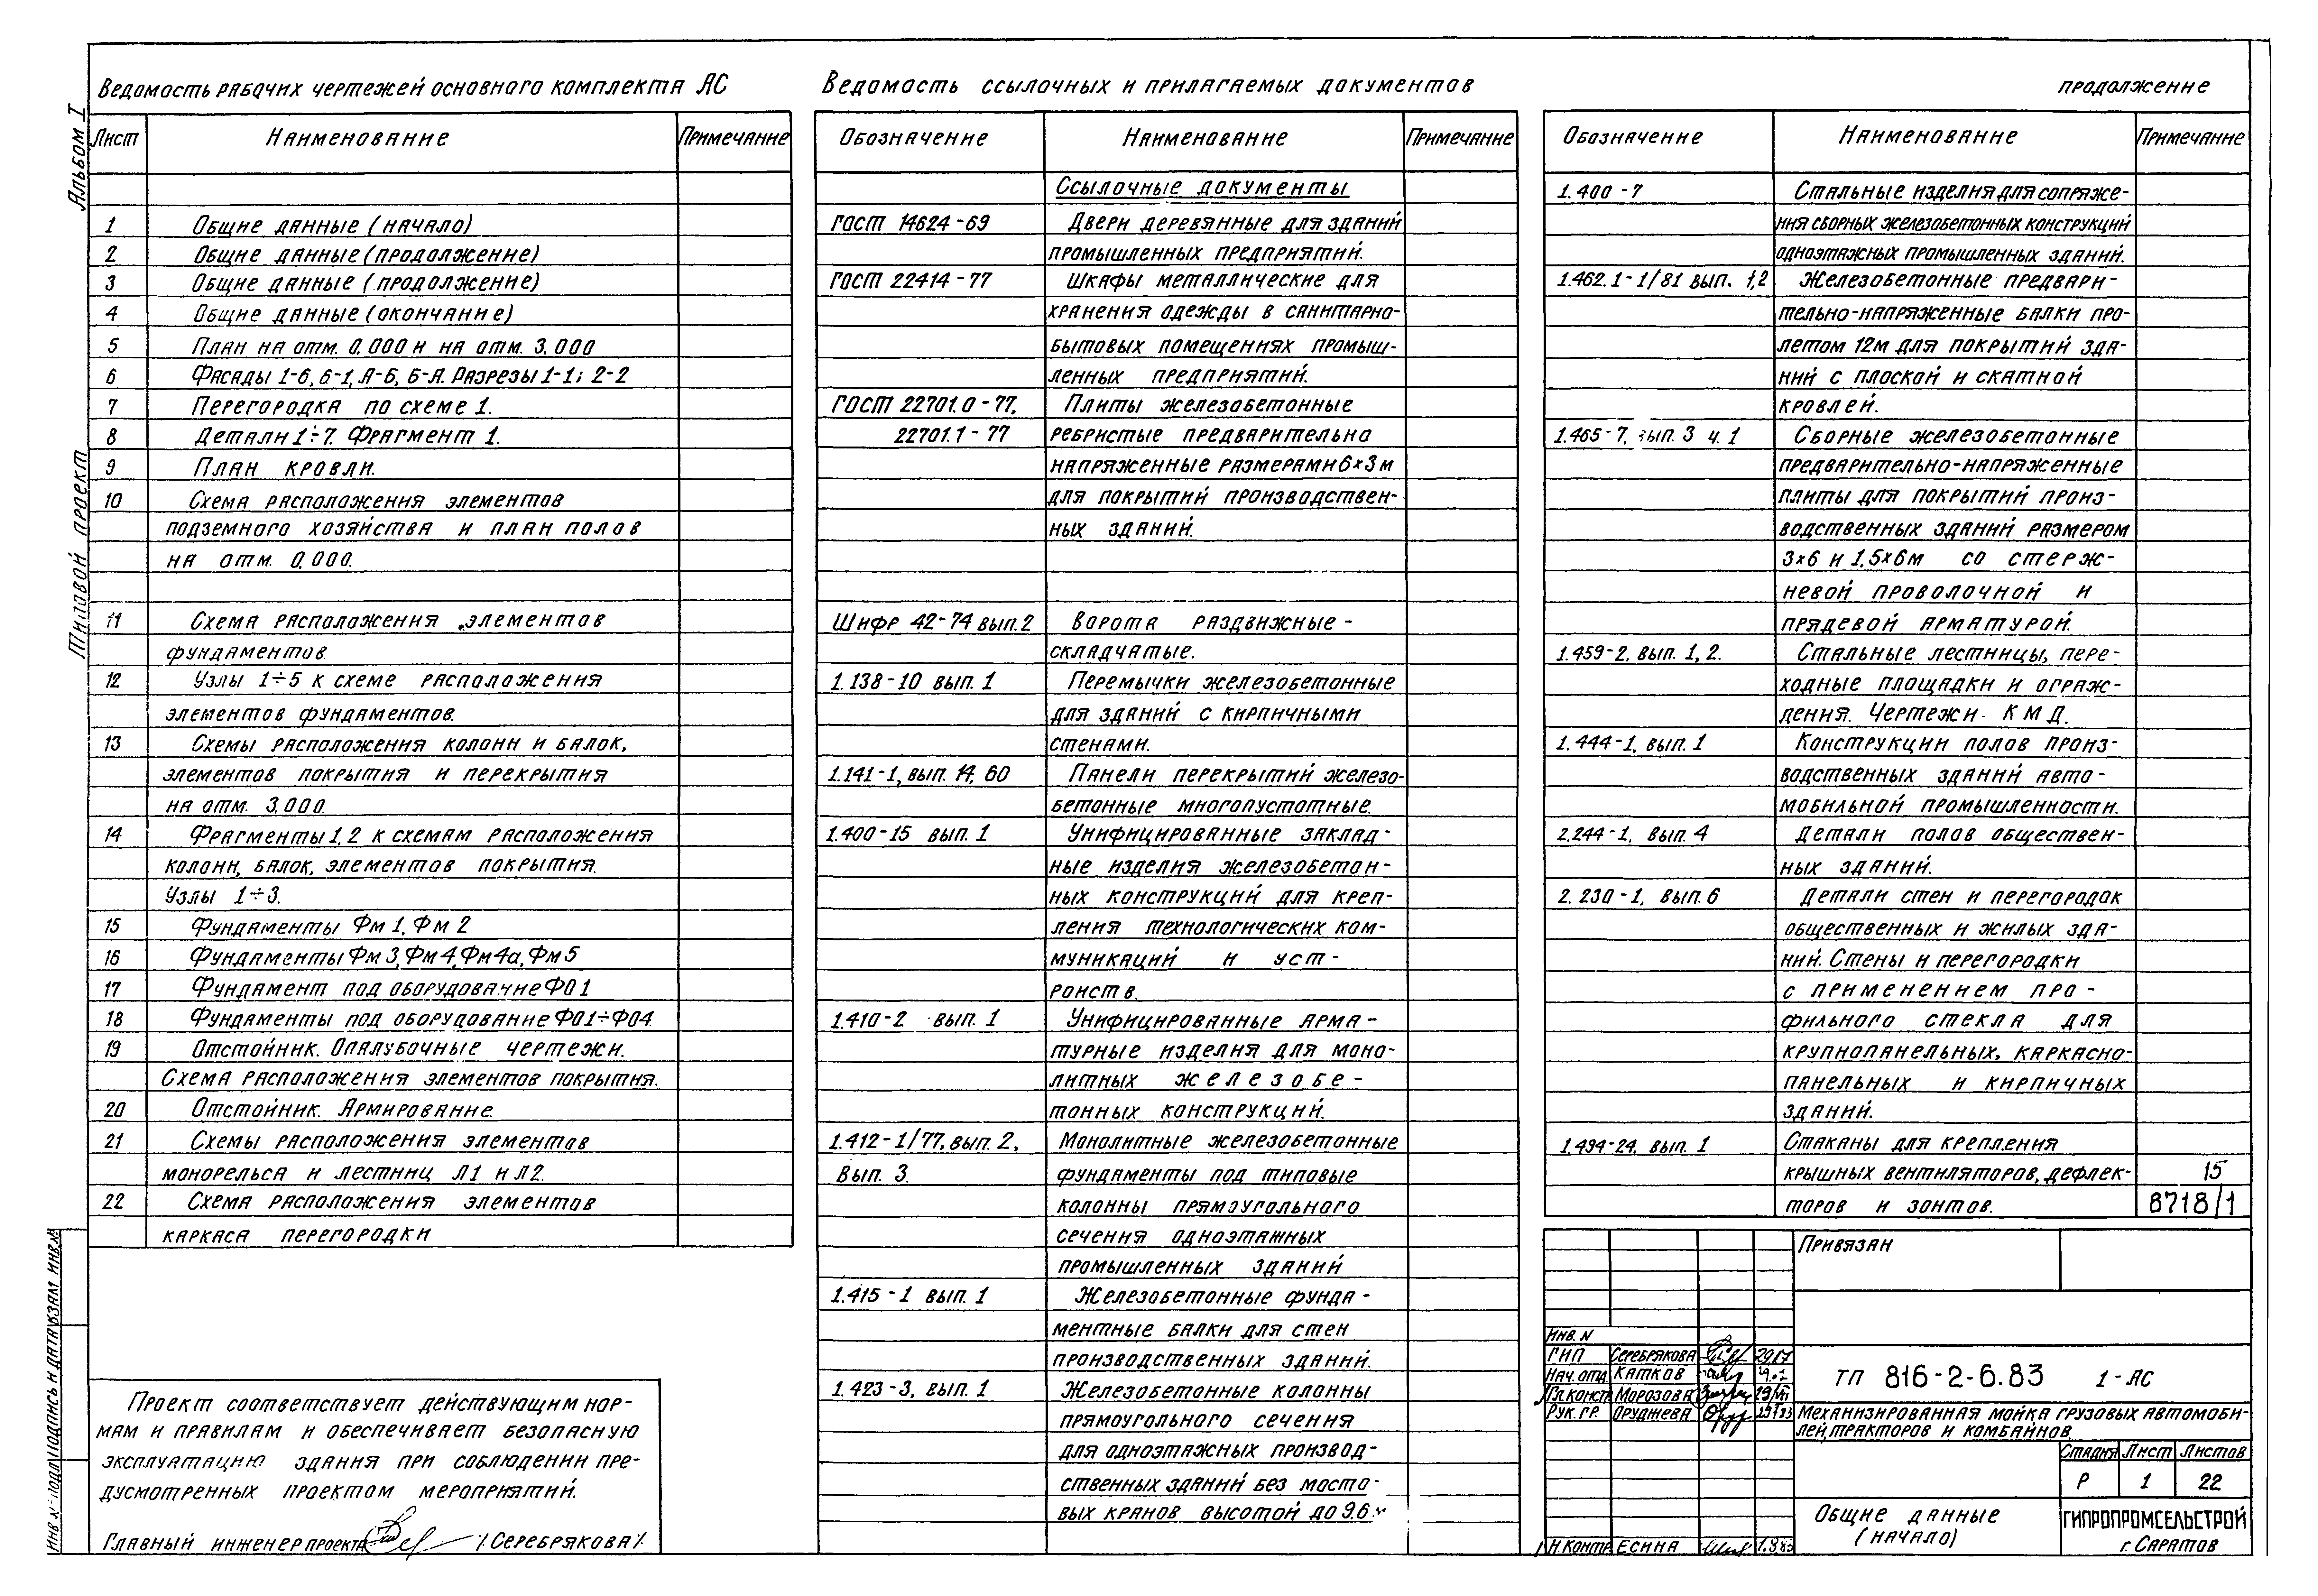 Ведомость рабочих чертежей основного комплекта АС
Лист Наименование Примечание
1 Общие данные (начало)
2 Общие данные (продолжение)
3 Общие данные (продолжение)
4 Общие данные (окончание)
5 План на отм. 0,000 и на отм. 3.000
6 Фасады 1-6, 6-1, А-Б, Б-А. Разрезы 1-1; 2-2
7 Перегородка по схеме 1.
8 Детали 1÷7. Фрагмент 1.
9 План кровли.
10 Схема расположения элементов
подземного хозяйства и план полов
на отм. 0,000.
11 Схема расположения элементов
фундаментов.
12 Узлы 1÷5 к схеме расположения
элементов фундаментов.
13 Схемы расположения колонн и балок,
элементов покрытия и перекрытия
на отм. 3.000.
14 Фрагменты 1,2 к схемам расположения
колонн, балок, элементов покрытия.
Узлы 1÷3.
15 Фундаменты Фм 1, Фм 2
16 Фундаменты Фм 3, Фм 4, Фм 4а, Фм 5
17 Фундамент под оборудование ФО1
18 Фундаменты под оборудование ФО1÷ФО4.
19 Отстойник. Опалубочные чертежи.
Схема расположения элементов покрытия.
20 Отстойник. Армирование.
21 Схемы расположения элементов
монорельса и лестниц Л1 и Л2.
22 Схема расположения элементов
каркаса перегородки
Проект соответствует действующим нор-
мам и правилам и обеспечивает безопасную
эксплуатацию здания при соблюдении пре-
дусмотренных проектом мероприятий.
Главный инженер проекта /Серебрякова/.
Ведомость ссылочных и прилагаемых документов
Обозначение Наименование Примечание
Ссылочные документы
ГОСТ 14624-69 Двери деревянные для зданий
промышленных предприятий.
ГОСТ 22414-77 Шкафы металлические для
хранения одежды в санитарно-
бытовых помещениях промыш-
ленных предприятий.
ГОСТ 22701.0-77, Плиты железобетонные
22701.1-77 ребристые предварительно
напряженные размерами 6×3м
для покрытий производствен-
ных зданий.
Шифр 42-74 вып.2 Ворота раздвижные-
складчатые.
1.138-10 вып. 1 Перемычки железобетонные
для зданий с кирпичными
стенами.
1.141-1, вып. 14, 60 Панели перекрытий железо-
бетонные многопустотные.
1.400-15 вып. 1 Унифицированные заклад-
ные изделия железобетон-
ных конструкций для креп-
ления технологических ком-
муникаций и уст-
роиств.
1.410-2 вып. 1 Унифицированные арма-
турные изделия для моно-
литных железобе-
тонных конструкций.
1.412-1/77, вып. 2, Монолитные железобетонные
вып. 3. фундаменты под типовые
колонны прямоугольного
сечения одноэтажных
промышленных зданий
1.415-1 вып. 1 Железобетонные фунда-
ментные балки для стен
производственных зданий.
1.423-3, вып. 1 Железобетонные колонны
прямоугольного сечения
для одноэтажных производ-
ственных зданий без мосто-
вых кранов высотой до 9.6 м
продолжение
Обозначение Наименование Примечание
1.400-7 Стальные изделия для сопряже-
ния сборных железобетонных конструкций
одноэтажных промышленных зданий.
1.462.1-1/81 вып. 1,2 Железобетонные предвари-
тельно-напряженные балки про-
летом 12м для покрытий зда-
ний с плоской и скатной
кровлей.
1.465-7, вып. 3 ч. 1 Сборные железобетонные
предварительно-напряженные
плиты для покрытий произ-
водственных зданий размером
3×6 и 1,5×6м со стерж-
невой проволочной и
прядевой арматурой.
1.459-2, вып. 1, 2. Стальные лестницы, пере-
ходные площадки и ограж-
дения. Чертежи КМД.
1.444-1, вып. 1 Конструкции полов произ-
водственных зданий авто-
мобильной промышленности.
2.244-1, вып. 4 Детали полов обществен-
ных зданий.
2.230-1, вып. 6 Детали стен и перегородок
общественных и жилых зда-
ний. Стены и перегородки
с применением про-
фильного стекла для
крупнопанельных, каркасно-
панельных и кирпичных
зданий.
1.494-24, вып. 1 Стаканы для крепления
крышных вентиляторов, дефлек- 15
торов и зонтов. 8718/1
Привязан
Инв. N
ГИП Серебрякова
Нач. отд. Катков
Гл. констр Морозова
Рук. гр. Оруджева
Н. контр Есина 1.3.83
ТП 816-2-6.83 1-АС
Механизированная мойка грузовых автомоби-
лей, тракторов и комбайнов
Стадия Лист Листов
Р 1 22
Общие данные
(начало)
ГИПРОПРОМСЕЛЬСТРОЙ
г. Саратов
Альбом I
Типовой проект
Инв № подл Подпись и дата Взам инв.№